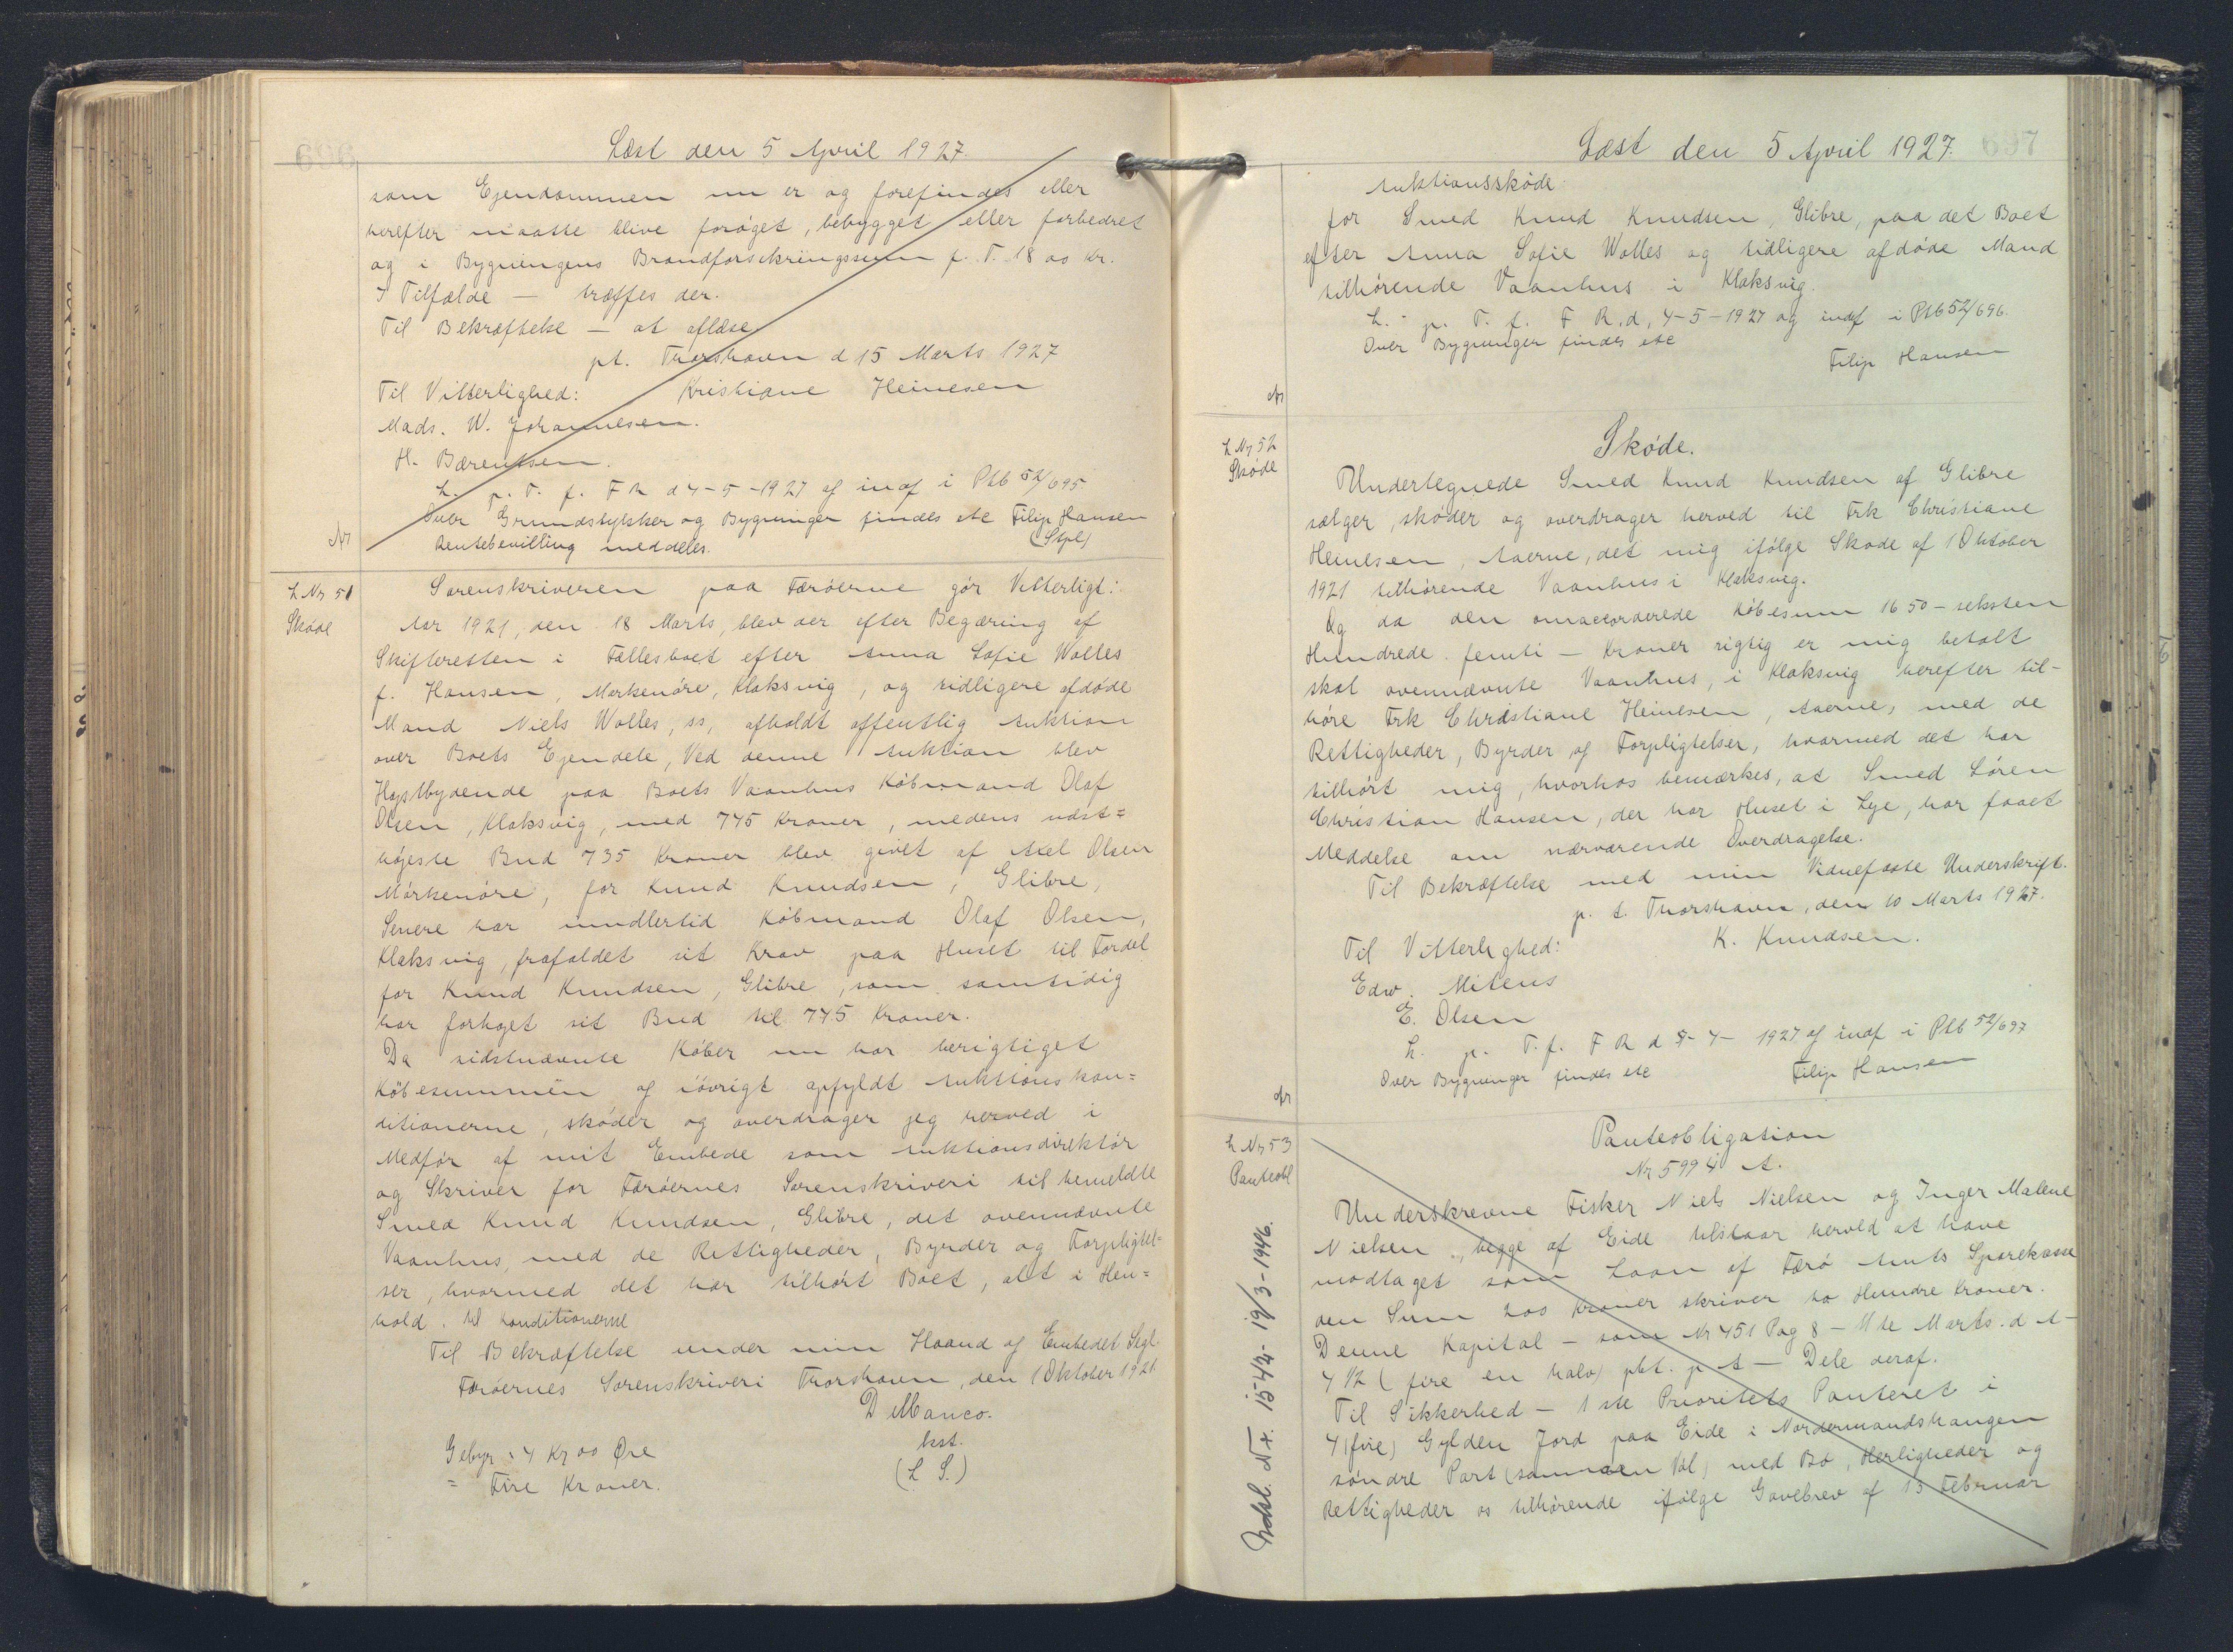 696
Læst den 5 April 1927.
som Ejendommen nu er og forefindes eller
herefter maatte blive forøget, bebygget eller forbedret
og i Bygningens Brandforsikringssum p. T. 18 00 Kr.
I Tilfælde — træffes der.
Til Bekræftelse — at aflæse.
pt. Thorshavn d 15 Marts 1927
Til Vitterlighed: Kristiane Heinesen
Mads. W. Johannesen.
H. Bærentsen.
L. p. T. f. F R d 4-5-1927 og indf i Ptb 52/695
Over Grundstykker og Bygninger findes ete Filip Hansen
Rentebevilling meddeles. (Stpl)
L Nr 51
Skøde
Sorenskriveren paa Færøerne gør Vitterligt:
Aar 1921, den 18 Marts, blev der efter Begæring af
Skifteretten i Fællesboet efter Anna Sofie Wolles
f. Hansen, Mørkenøre, Klaksvig, og tidligere afdøde
Mand Niels Wolles, ss, afholdt offentlig Auktion
over Boets Ejendele, Ved denne Auktion blev
Højstbydende paa Boets Vaanhus Købmand Olaf
Olsen, Klaksvig, med 745 Kroner, medens næst=
højeste Bud 735 Kroner blev givet af Axel Olsen
Mörkenøre, for Knud Knudsen, Glibre,
Senere har imidlertid Købmand Olaf Olsen,
Klaksvig, frafaldet sit Krav paa Huset til Fordel
for Knud Knudsen, Glibre, som samtidig
har forhøjet sit Bud til 745 Kroner.
Da sidstnævnte Køber nu har berigtiget
Købesummen og iøvrigt opfyldt Auktionskon=
ditionerne, skøder og overdrager jeg herved i
Medfør af mit Embede som Auktionsdirektør
og Skriver for Færøernes Sorenskriveri til bemeldte
Smed Knud Knudsen, Glibre, det ovennævnte
Vaanhus, med de Rettigheder, Byrder og Forpligtel=
ser, hvormed det har tilhørt Boet, alt i Hen=
hold til Konditionerne
Til Bekræftelse under min Haand og Embedet Segl.
Færøernes Sorenskriveri Thorshavn, den 1 Oktober 1921
kst.
(L S.)
Gebyr: 4 Kr 00 Øre
= Fire Kroner.
697
Læst den 5 April 1927.
Auktionsskøde
for Smed Knud Knudsen, Glibre, paa det Boet
efter Anna Sofie Wolles og tidligere afdøde Mand
tilhørende Vaanhus i Klaksvig.
L. - p. T. f. F R. d, 4-5-1927 og indf i Ptb 52/696.
Over Bygninger findes ete
Filip Hansen
L Nr 52
Skøde
Skøde.
Undertegnede Smed Knud Knudsen af Glibre
sælger, skøder og overdrager herved til Frk Christiane
Heinesen, Aaerne, det mig ifølge Skøde af 1 Oktober
1921 tilhørende Vaanhus i Klaksvig.
Og da den omaccorderede Købesum 1650 – seksten
Hundrede femti — Kroner rigtig er mig betalt
skal ovennævnte Vaanhus, i Klaksvig herefter til-
høre Frk Christiane Heinesen, Aaerne, med de
Rettigheder, Byrder og Forpligtelser, hvormed det har
tilhørt mig, hvorhos bemærkes, at Smed Sören
Christian Hansen, der har Huset i Leje, har faaet
Meddelse om nærværende Overdragelse.
Til Bekræftelse med min Vidnefaste Underskrift.
p. t. Thorshavn, den 10 Marts 1927.
Til Vitterlighed: K. Knudsen.
Edw. Mitens
E. Olsen
L. p. T. f. F R d 5- 4- 1927 og indf i Ptb 52/697
Over Bygninger findes ete Filip Hansen
L Nr 53
Panteobl
Indsl. Nr. 1542- 19/3-1946.
Panteobligation
Nr 5994 A.
Underskrevne Fisker Niels Nielsen og Inger Malene
Nielsen, begge af Eide tilstaar herved at have
modtaget som Laan af Færø Amts Sparekasse
den Sum 200 Kroner skriver to Hundre Kroner.
Denne Kapital — som Nr 451 Pag 8 — 11te Marts. d A —
4 1/2 (fire en halv) pct. p A — Dele deraf.
Til Sikkerhed — 1ste Prioritets Panteret i
4 (fire) Gylden Jord paa Eide i Nordermandshaugen
søndre Part (sammen Vol) med Bø, Herligheder og
Rettigheder os tilhørende ifølge Gavebrev af 13 Februar